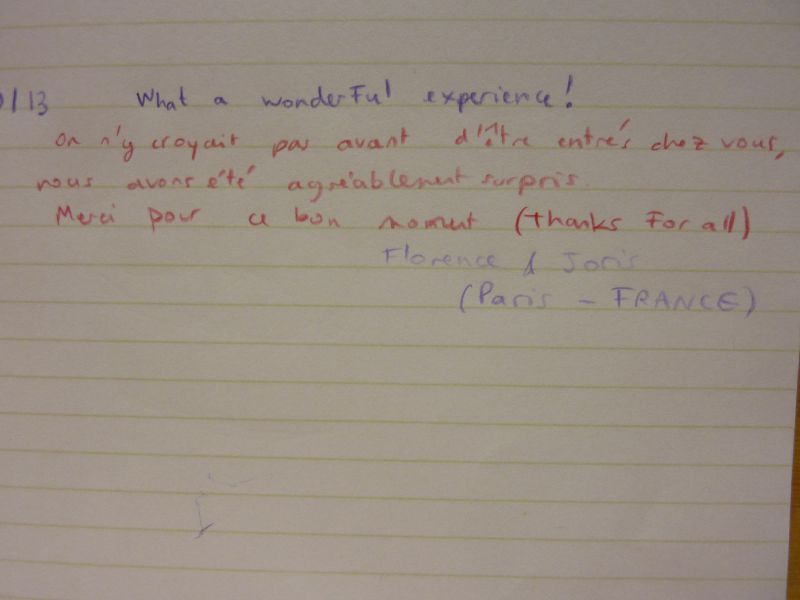 /13 What a wonderful experience!
On n'y croyait pas avant d'être entrés chez vous,
nous avons été agréablement surpris.
Merci pour ce bon moment (thanks for all)
Florence & Joris
(Paris - FRANCE)